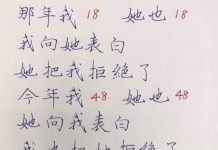 那年我18 她也18
我向她表白
她把我拒絕了
今年我48 她也48
她向我表白